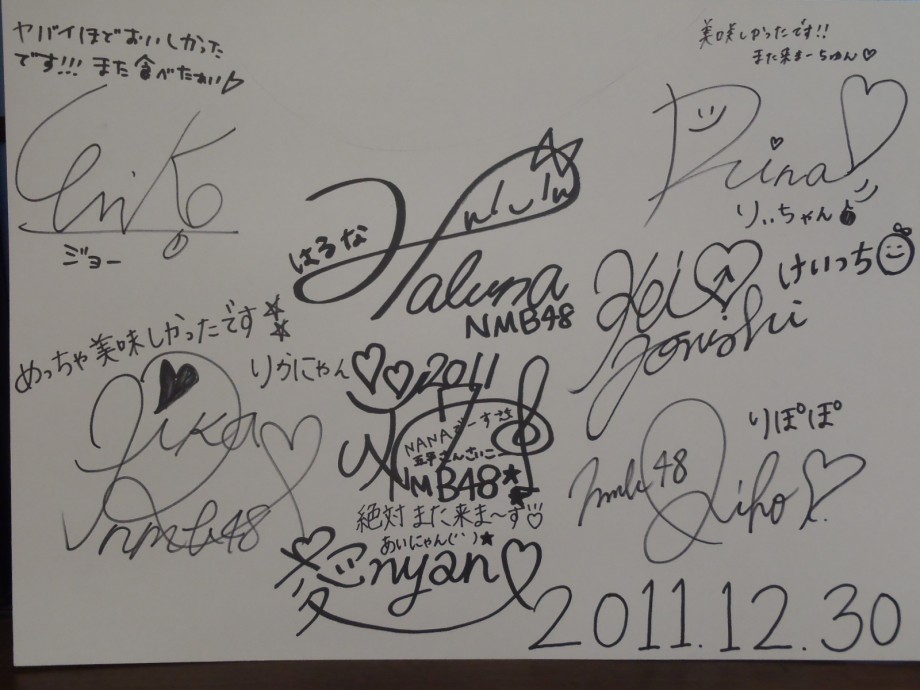 ヤバイほどおいしかった
です!!! また食べたぁい♡
ジョー
美味しかったです!!
また来まーちゅん♡
Riina
りぃちゃん
はるな
Haluna
NMB48
Kei
けいっち
Jonishi
めっちゃ美味しかったです☆☆
りかにゃん♡♡
Rika
nmb48
2011
NANAだーすき
さいこー
NMB48★
絶対また来ま〜す♡
あいにゃん(^^)★
愛nyan♡
りぽぽ
nmb48
Riho♡
2011.12.30